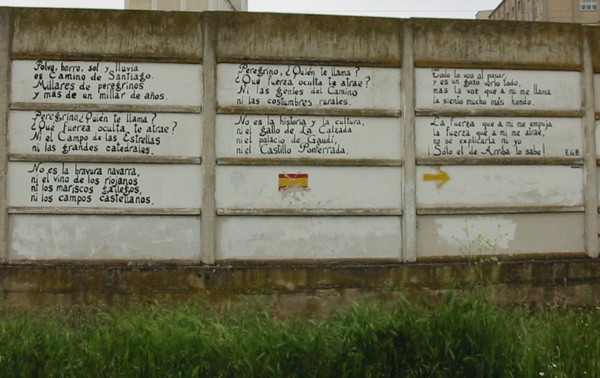 Polvo, barro, sol y lluvia
es Camino de Santiago.
Millares de peregrinos
y más de un millar de años.
Peregrino ¿Quién te llama?
¿Que fuerza oculta, te atrae?
Ni el Campo de las Estrellas
ni las grandes catedrales.
No es la bravura navarra,
ni el vino de los riojanos
ni los mariscos gallegos,
ni los campos castellanos.
Peregrino, ¿Quién te llama?
¿Que fuerza oculta te atrae?
Ni las gentes del Camino
ni las costumbres rurales.
No es la historia y la cultura,
ni el gallo de La Calzada
ni el palacio de Gaudí,
ni el Castillo Ponferrada.
Todo lo veo al pasar,
y es un gozo verlo todo,
mas la voz que a mi me llama
la siento mucho más hondo.
La fuerza que a mi me empuja
la fuerza que a mi me atrae,
no se explicarla ni yo
¡Solo el de Arriba lo sabe! E.G.B.